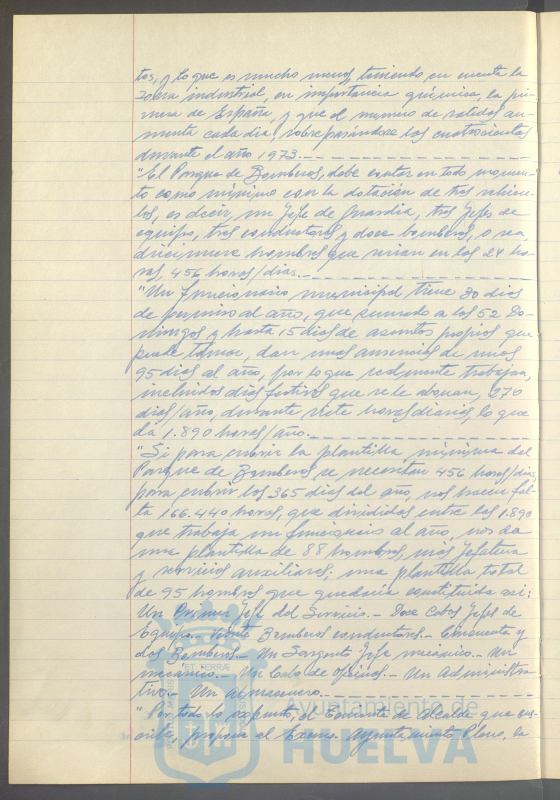 tos, y lo que es mucho menos, teniendo en cuenta la
zona industrial, en importancia química, la pri-
mera de España, y que el numero de salidas au-
menta cada día, sobrepasándose las cuatrocientas
durante el año 1973.
"El Parque de Bomberos, debe contar en todo momen-
to como mínimo con la dotación de tres vehícu-
los, es decir, un Jefe de Guardia, tres Jefes de
equipo, tres conductores y doce bomberos, o sea,
diecinueve hombres que serían en las 24 ho-
ras, 456 horas/día.
"Un funcionario municipal tiene 30 días
de permiso al año, que sumado a los 52 Do-
mingos y hasta 15 días de asuntos propios que
puede tomar, dan unas ausencias de unos
95 días al año, por lo que realmente trabajan,
incluidos días festivos que se le abonan, 270
días/año, durante siete horas diarias, lo que
da 1.890 horas/año.
"Si para cubrir la plantilla mínima del
Parque de Bomberos se necesitan 456 horas/día,
para cubrir los 365 días del año, nos hacen fal-
ta 166.440 horas, que divididas entre las 1.890
que trabaja un funcionario al año, nos da
una plantilla de 88 hombres, más Jefatura
y servicios auxiliares; una plantilla total
de 95 hombres que quedaría constituida así:
Un Primer Jefe del Servicio.- Doce Cabos Jefes de
Equipo.- Veinte Bomberos conductores.- Cincuenta y
dos Bomberos.- Un Sargento Jefe mecánico.- Un
mecánico.- Un Cabo de Oficios.- Un Administra-
tivo.- Un Almacenero.
"Por todo lo expuesto, el Teniente de Alcalde que sus-
cribe, propone al Excmo. Ayuntamiento Pleno, la
ET TERRÆ
Ayuntamiento de
HUELVA